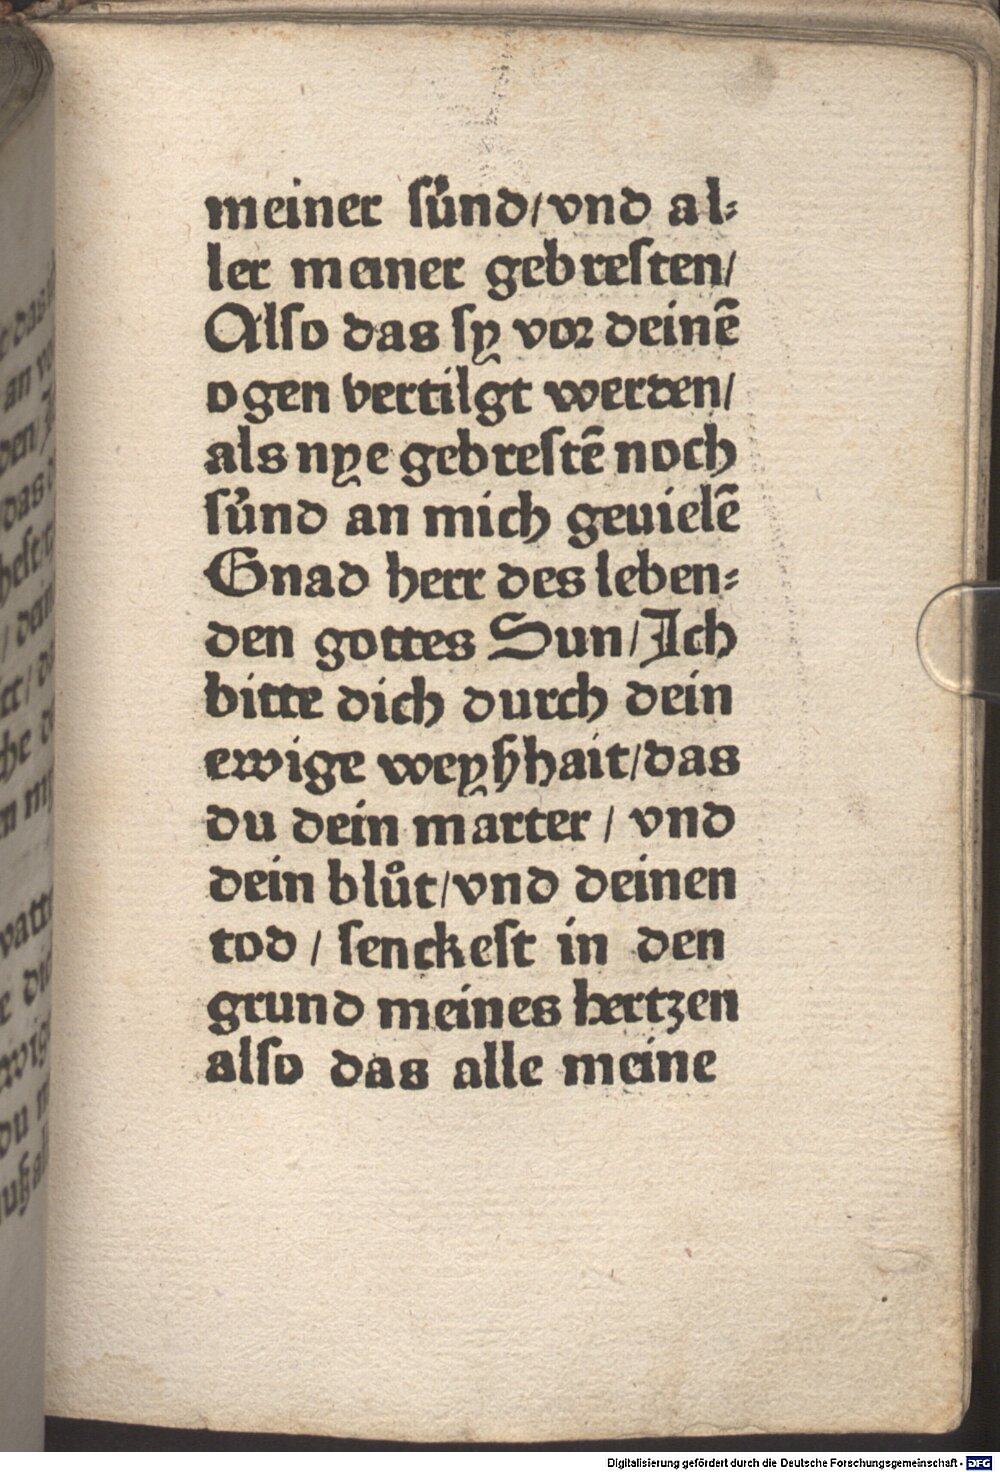 meiner sünd/vnd al⸗
ler meiner gebresten/
Also das sy vor deinē
ogen vertilgt werden/
als nye gebrestē noch
sünd an mich geuielē
Gnad herr des leben⸗
den gottes Sun/Ich
bitte dich durch dein
ewige weyßhait/das
du dein marter / vnd
dein blůt/vnd deinen
tod / senckest in den
grund meines hertzen
also das alle meine
Digitalisierung gefördert durch die Deutsche Forschungsgemeinschaft - DFG